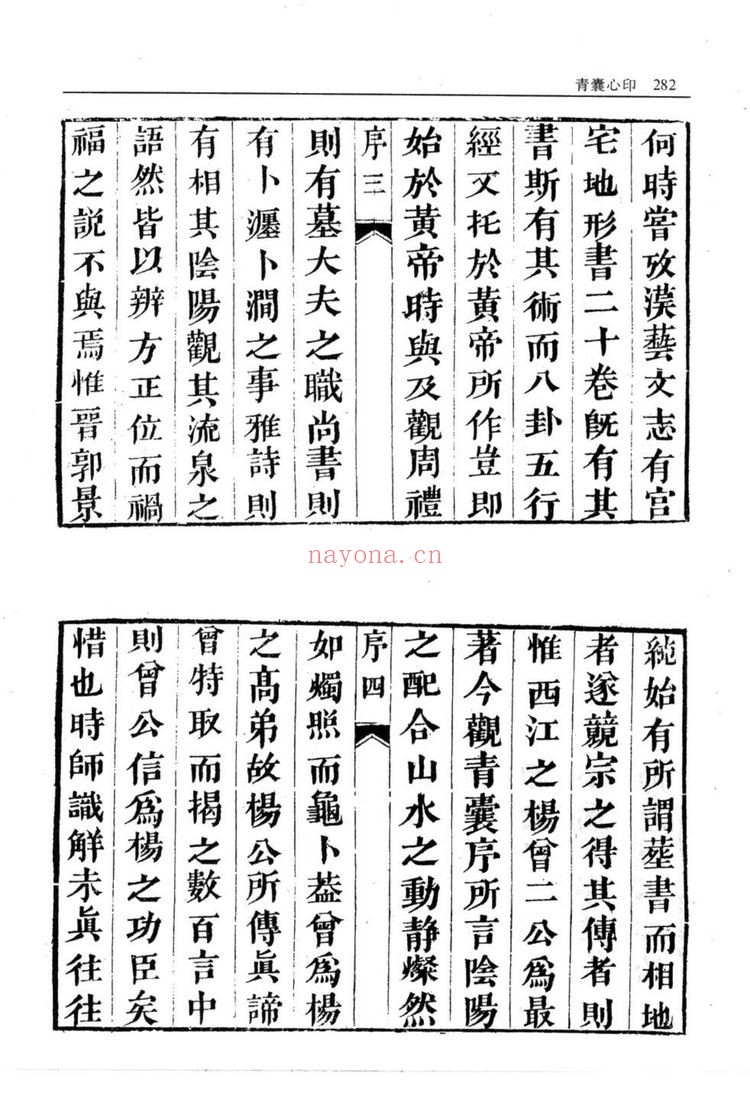 青囊心印 282
何時嘗攷漢藝文志有宫
宅地形書二十卷既有其
書斯有其術而八卦五行
經又托於黄帝所作豈即
始於黄帝時與及觀周禮
序三
則有墓大夫之職尚書則
有卜瀍卜澗之事雅詩則
有相其陰陽觀其流泉之
語然皆以辨方正位而禍
福之説不與焉惟晋郭景
nayona.cn
純始有所謂塟書而相地
者遂競宗之得其傳者則
惟西江之楊曾二公爲最
著今觀青囊序所言陰陽
之配合山水之動静燦然
序四
如燭照而龜卜葢曾爲楊
之高弟故楊公所傳眞諦
曾特取而揭之數百言中
則曾公信爲楊之功臣矣
惜也時師識解未眞往往